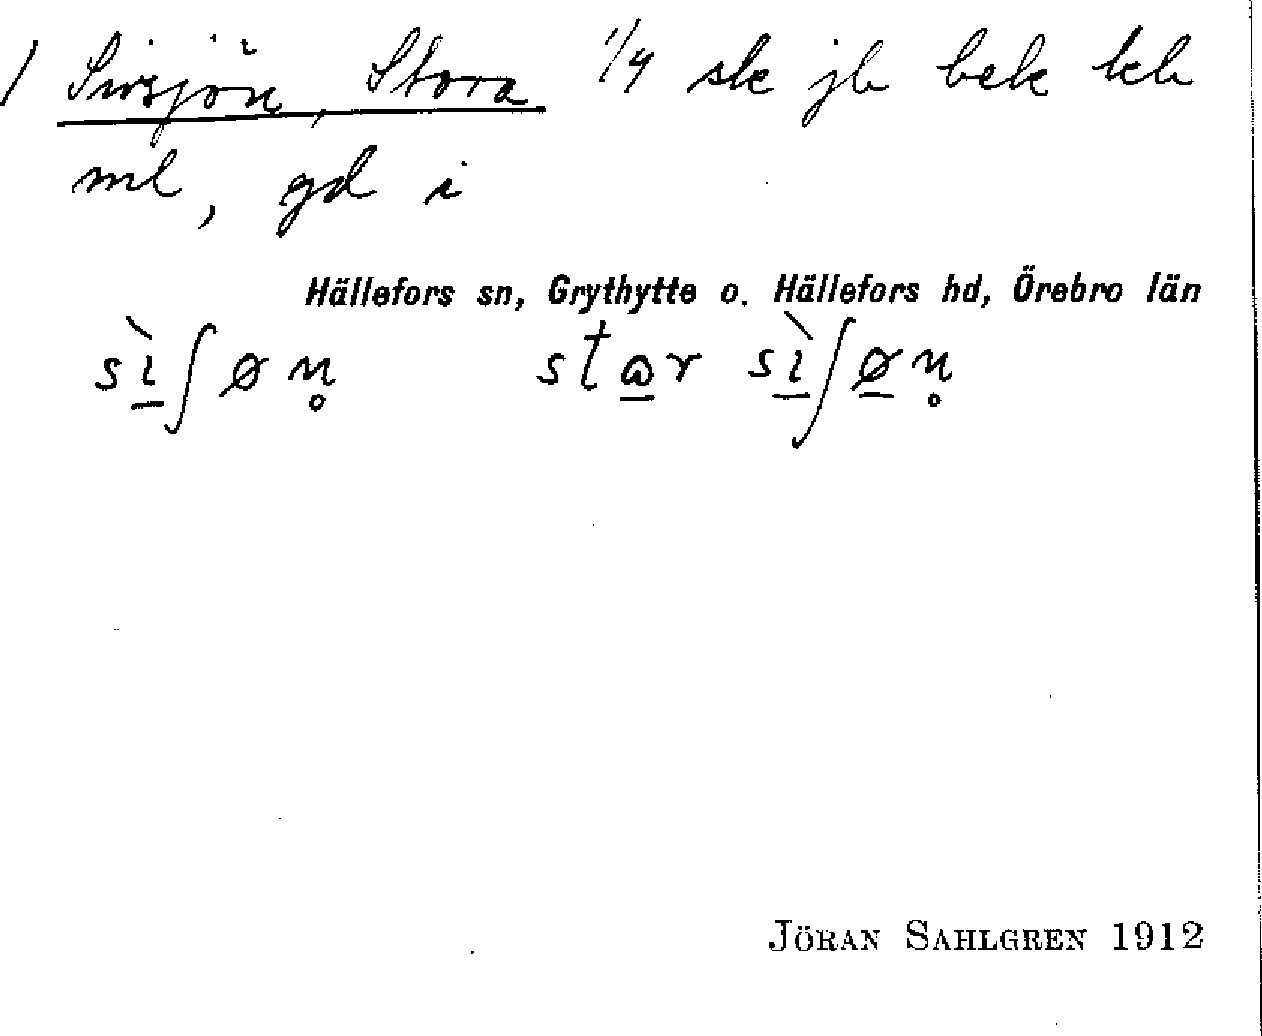 / Sirsjön, Stora 1/4 sk jb bek kb
ml, gd i
Hällefors sn, Grythytte o. Hällefors hd, Örebro län
sì̠ʃøn̥ stɷ̠r sì̠ʃø̠n̥
JÖRAN SAHLGREN 1912